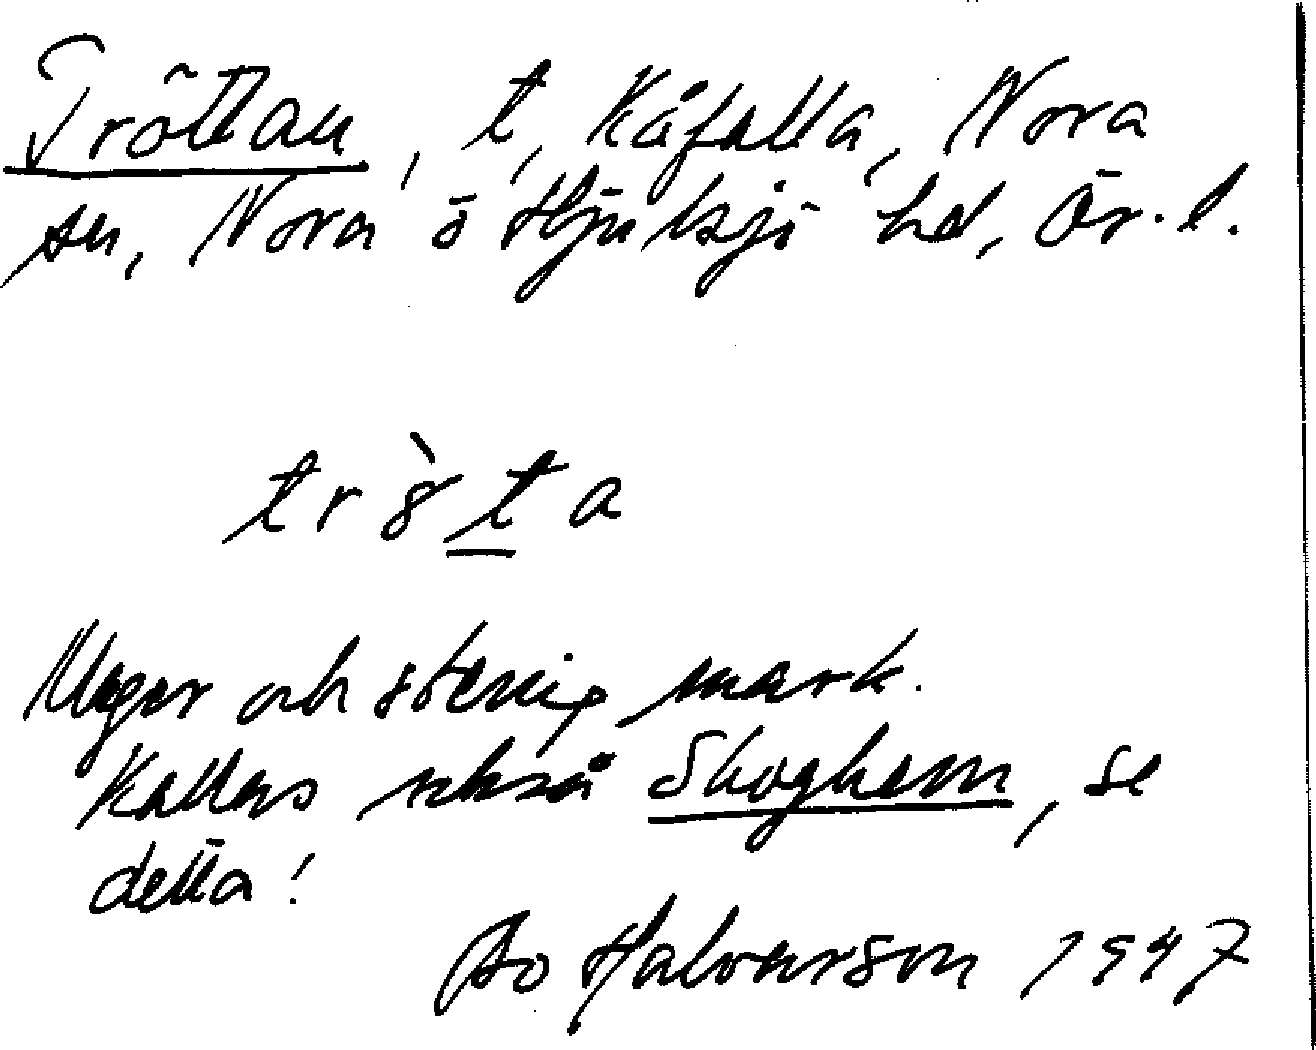 Tröttan, t, Kåfalla, Nora
sn, Nora ö Hjulsjö hd, Ör. l.
tr8̀ta
Mager och stenig mark.
Kallas också Skoghem, se
detta!
Bo Halvarson 1947